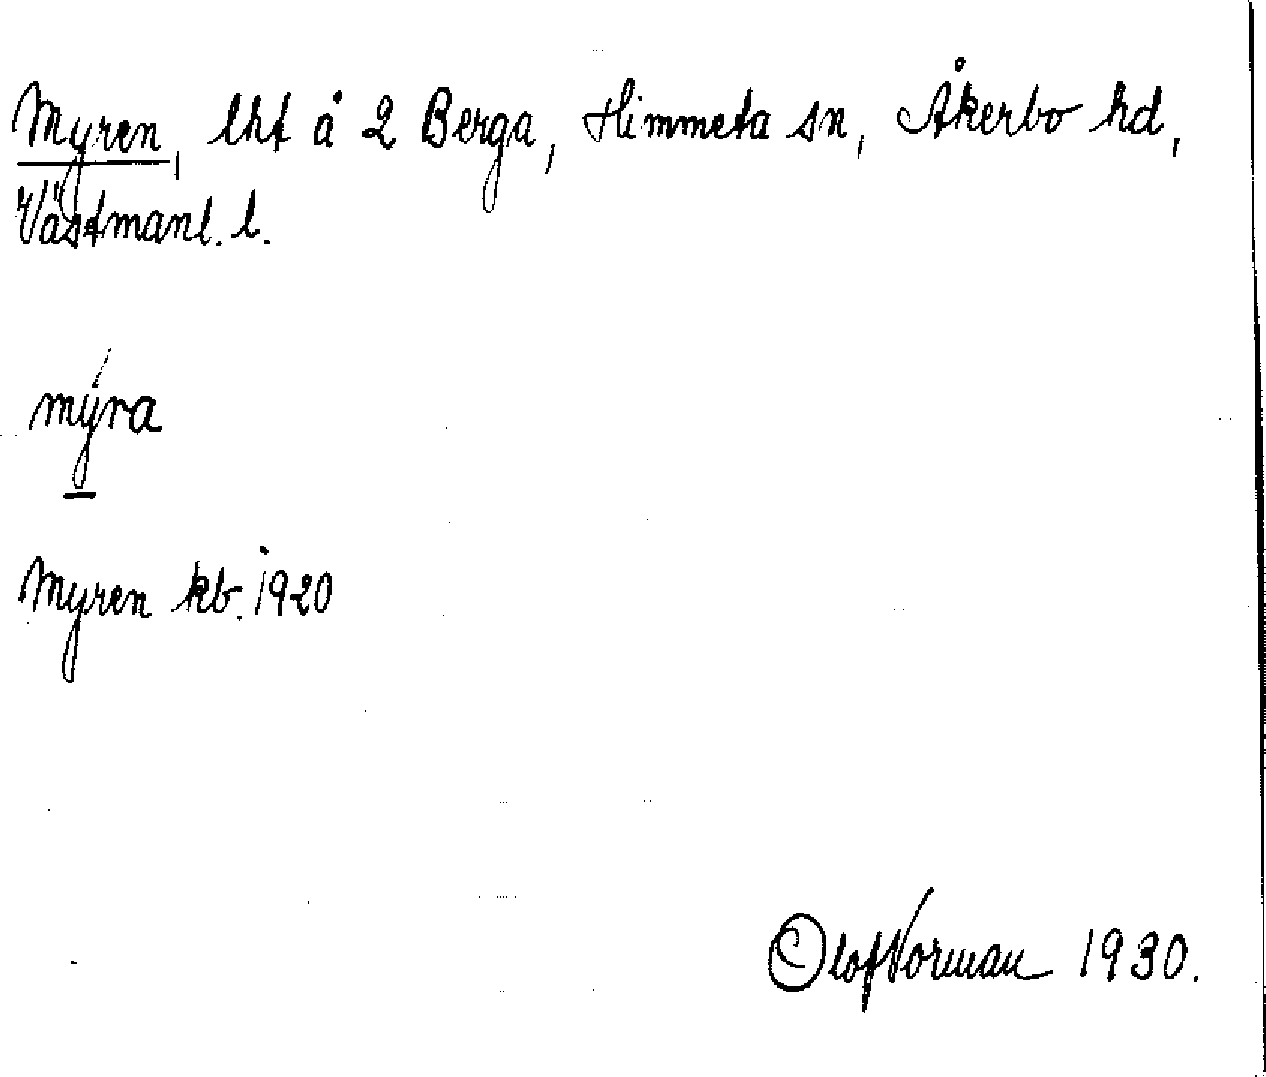 Myren, lht å 2 Berga, Himmeta sn, Åkerbo hd,
Västmanl. l.
mýra
Myren kb. 1920
Olof Norman 1930.